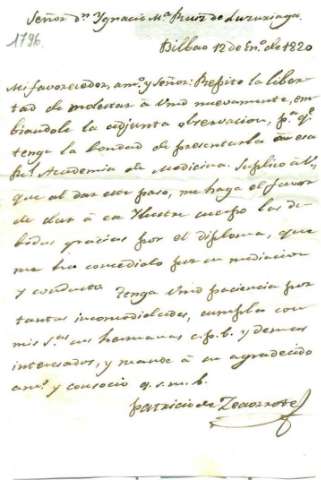 Señor Dn. Ygnacio Ma. Ruiz de Luzuriaga.
1796
Bilbao 12 de Eno. de 1820
Mi favorecedor, amo. y Señor: Repito la liber-
tad de molestar à Vmd nuevamente, em-
biandole la adjunta observacion, pa. qe.
tenga la bondad de presentarla à esa
Rl. Academia de Medicina. Suplico à V,
que al dar este paso, me haga el favor
de dar à ese Ylustre cuerpo las de-
bidas gracias por el diploma, que
me ha concedido por su mediacion
y conducto. Tenga Vmd paciencia por
tantas incomodidades, cumpla con
mis sas. sus hermanas c.p.b. y demas
interesados, y mande à su agradecido
amo. y consocio q.s.m.b.
Patricio de Zenarrote